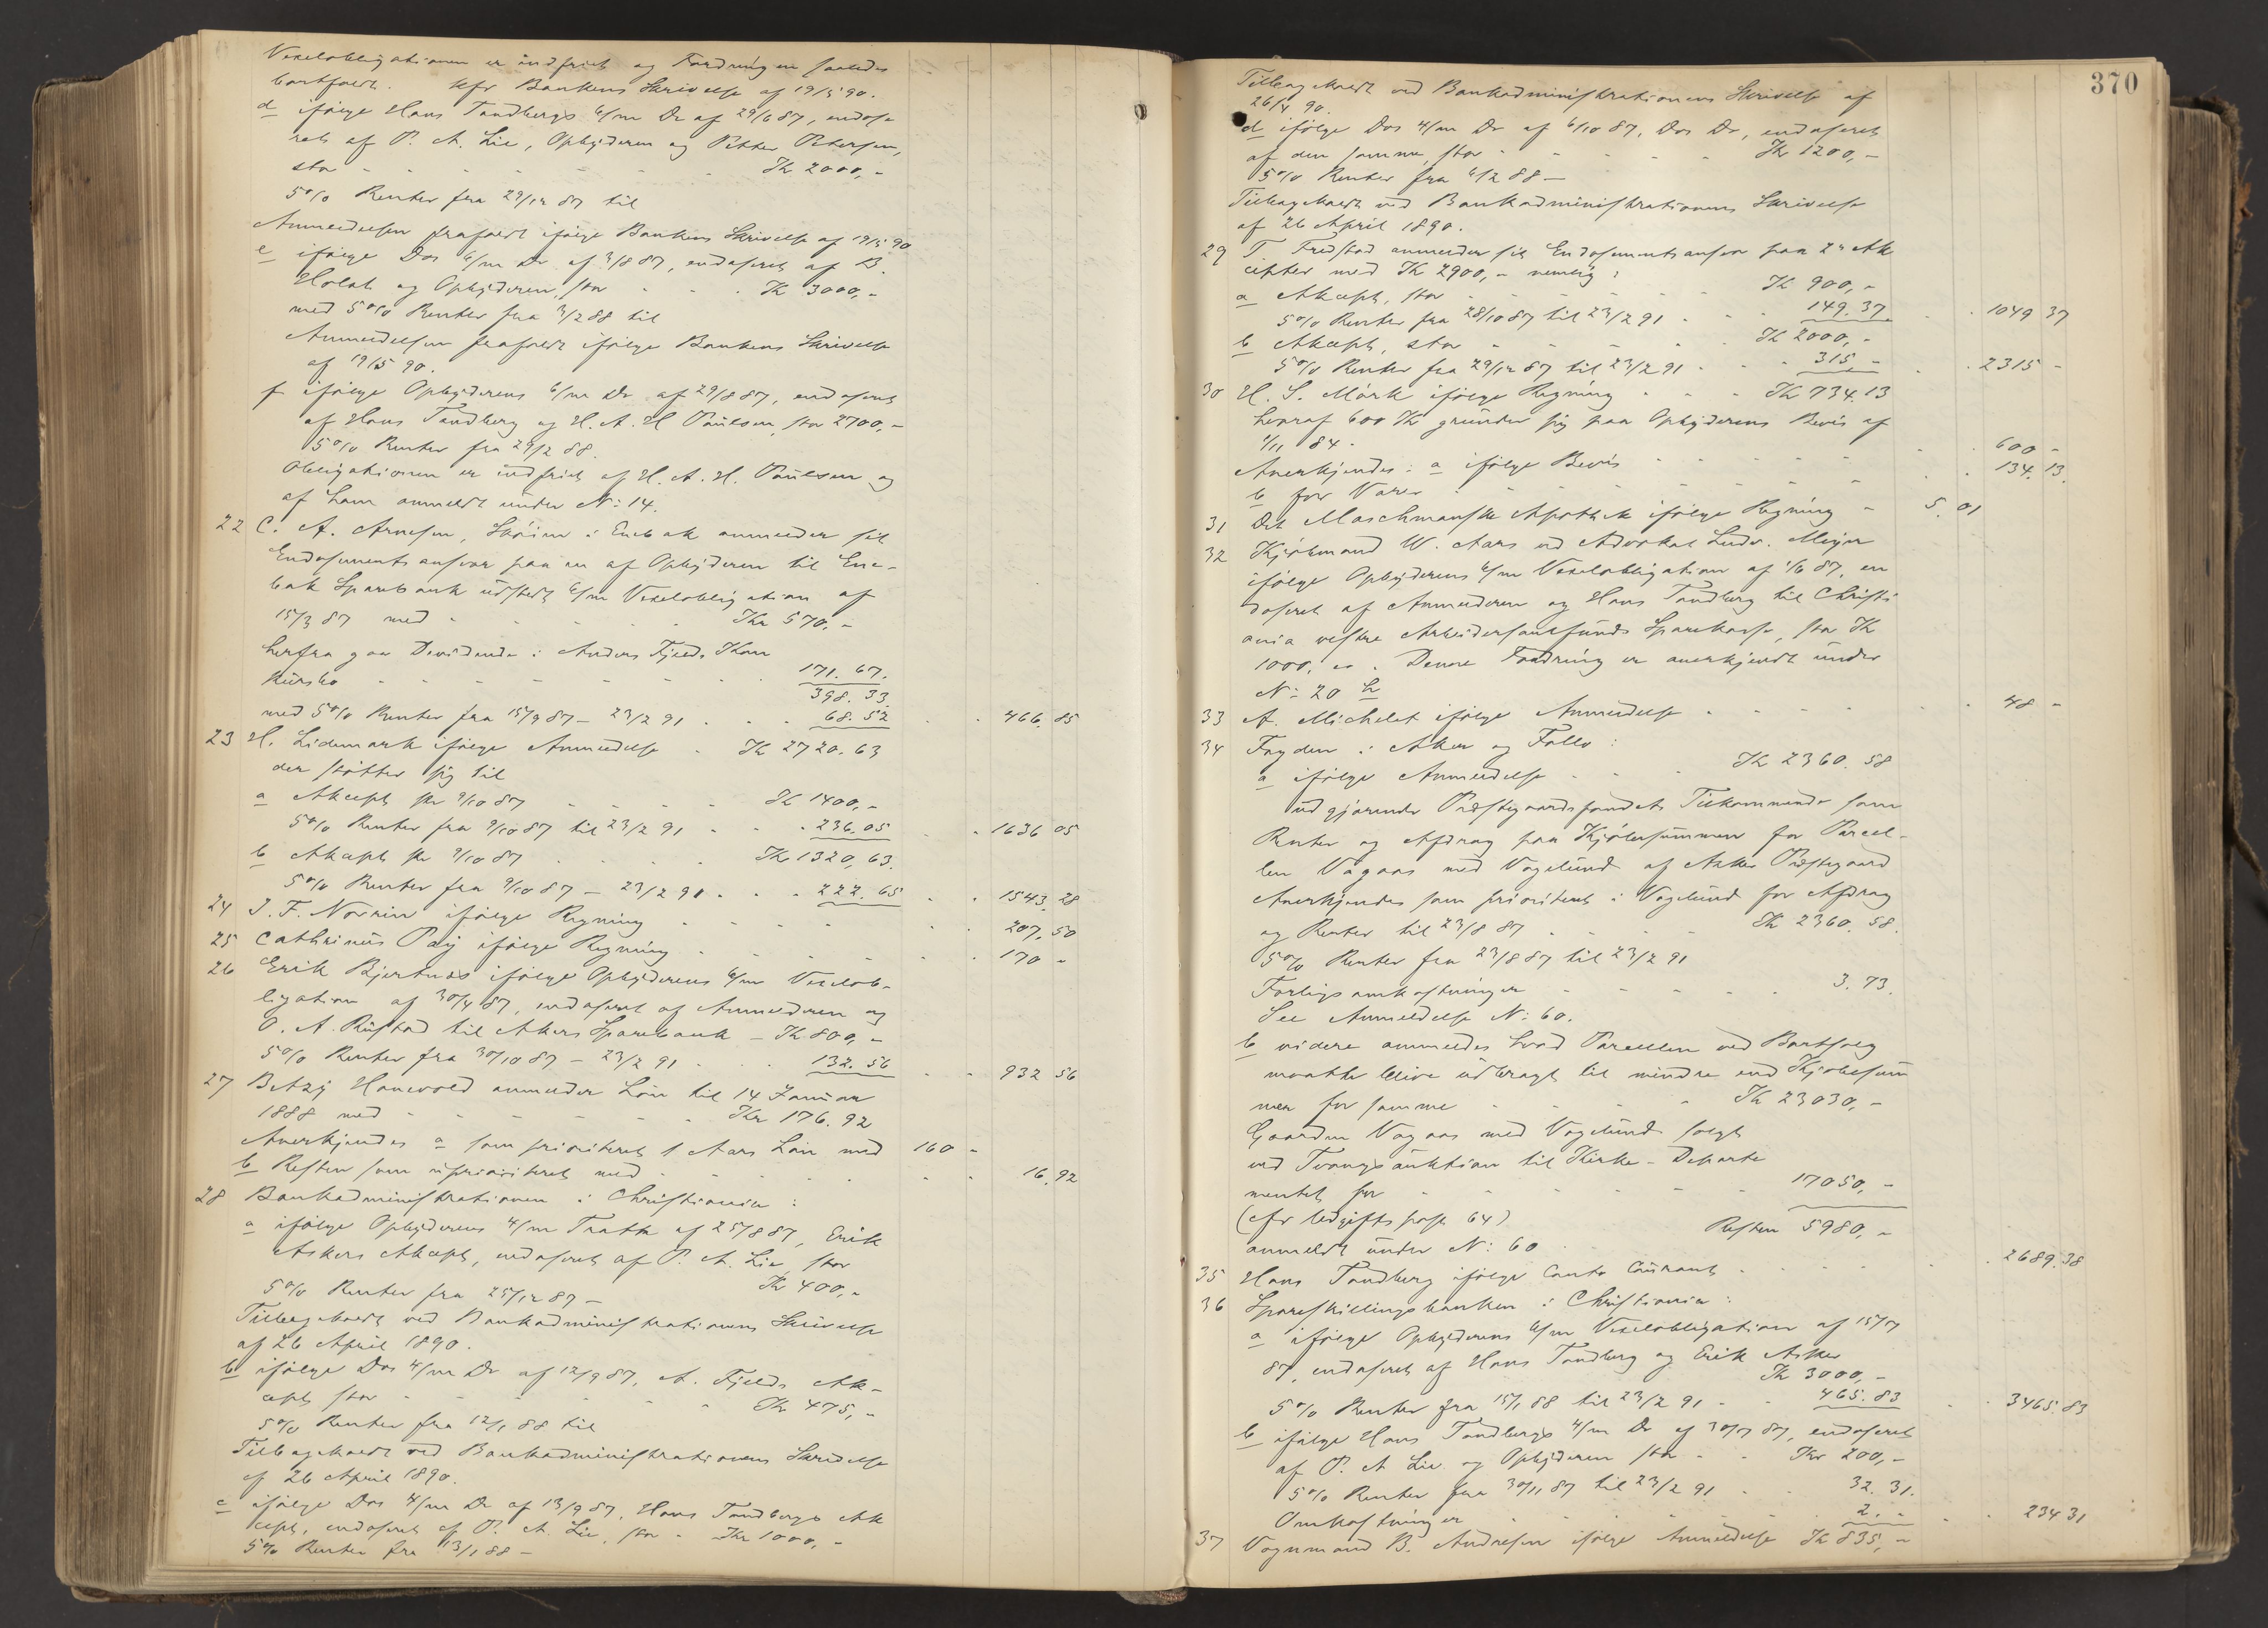 Vexelobligationen er indfriet og Fordringen saaledes
bortfaldt. Kfr Bankens Skrivelse af 19/5 90.
d ifølge Hans Tandbergs 6/m Do af 29/6 87, endosse
ret af P. A. Lie, Opbyderen og Petter Petersen,
stor - - - Kr 2000,-
5% Renter fra 29/12 87 til
Anmeldelsen frafaldt ifølge Bankens Skrivelse af 19/5 90
e ifølge Dos 6/m Do af 3/8 87, endosseret af B.
Holst og Opbyderen, stor - - Kr 3000,-
med 5% Renter fra 3/2 88 til
Anmeldelsen frafaldt ifølge Bankens Skrivelse
af 19/5 90.
f ifølge Opbyderens 6/m Do af 29/8 87, endosseret
af Hans Tandberg og H. A. H. Paulsen, stor 2700,-
5% Renter fra 29/2 88.
Obligationen er indfriet af H. A. H. Paulsen og
af ham anmeldt under No: 14.
22 C. A. Arnesen, i Enebak anmelder sit
Endossementsansvar paa en af Opbyderen til Ene-
bak Sparebank udstedt 6/m Vexelobligation af
15/3 87 med - - - Kr 570,-
herfra gaar Dividende i Anders Fjelds Kon
kursbo - - - 171. 67.
398. 33.
med 5% Renter fra 15/9 87 - 23/2 91 - - 68. 52 - - 466. 85
23 H. Lidemark ifølge Anmeldelse - Kr 2720. 63
der støtter sig til
a Akcept pr 9/10 87 - - - Kr 1400,-
5% Renter fra 9/10 87 til 23/2 91 - - 236. 05 - - 1636 05
b Akcept pr 9/10 87 - - - Kr 1320, 63.
5% Renter fra 9/10 87 - 23/2 91 - - 222. 65 - - 1543. 28
24 J. F. ifølge Regning - - - 207. 50
25 Cathrinus ifølge Regning - - - 170 -
26 Erik Bjertnæs ifølge Opbyderens 6/m Vexelob-
ligation af 30/4 87, endosseret af Anmelderen og
O. A. Rustad til Akers Sparebank - Kr 800,-
5% Renter fra 30/10 87 - 23/2 91 - - 132. 56 - - 932 56
27 Betzy Hanevold anmelder Løn til 14 Januar
1888 med - - - Kr 176. 92
Anerkjendes a som prioriteret 1 Aars Løn med 160 -
b Resten som uprioriteret med - - - 16. 92
28 Bankadministrationen i Christiania:
a ifølge Opbyderens 4/m Tratte af 25/8 87, Erik
Askers Akcept, endosseret af P. A. Lie, stor
Kr 400,-
5% Renter fra 25/12 87 -
Tilbagekaldt ved Bankadministrationens Skrivelse
af 26 April 1890.
b ifølge Dos 4/m Do af 12/9 87, A. Fjelds Ak-
cept stor - - - Kr 475,-
5% Renter fra 12/1 88 til
Tilbagekaldt ved Bankadministrationens Skrivelse
af 26 April 1890.
c ifølge Dos 4/m Do af 13/9 87, Hans Tandbergs Ak
cept, endosseret af P. A. Lie, stor - Kr 1000,-
5% Renter fra 13/1 88 -
370
Tilbagekaldt ved Bankadministrationens Skrivelse af
26/4 90.
d ifølge Dos 4/m Do af 6/10 87, Dos Do, endosseret
af den samme, stor - - - Kr 1200,-
5% Renter fra 6/2 88 -
Tilbagekaldt ved Bankadministrationens Skrivelse
af 26 April 1890.
29 T. Fredstad anmelder sit Endossementsansvar paa 2de Ak
cepter med Kr 2900,- nemlig:
a Akcept, stor - - - Kr 900,-
5% Renter fra 28/10 87 til 23/2 91 - - 149. 37. - - 1049 37
b Akcept, stor - - - Kr 2000,-
5% Renter fra 29/12 87 til 23/2 91 - - 315,- - - 2315 -
30 H. S. Mørk ifølge Regning - - - Kr 734. 13
hvoraf 600 Kr grunder sig paa Opbyderens Bevis af
1/11 84.
Anerkjendes: a ifølge Bevis - - - 600 -
b for Varer - - - 134. 13.
31 Det Maschmanske Apothek ifølge Regning - 5. 01
32 Kjøbmand W. Aars ved Advokat Ludv. Meyer
ifølge Opbyderens 6/m Vexelobligation af 1/6 87, en
dosseret af Anmelderen og Hans Tandberg til Christi
ania vestre Arbeidersamfunds Sparekasse, stor Kr
1000. oo. Denne Fordring er anerkjendt under
No: 20 h
33 A. Michelet ifølge Anmeldelse - - - 48 -
34 Fogden i Aker og Follo:
a ifølge Anmeldelse - - - Kr 2360. 58
udgjørende Præstegaardsfondets Tilkommende som
Renter og Afdrag paa Kjøbesummen for Parcel-
len Vagaas med Vagelund af Asker Præstegaard
Anerkjendes som prioriteret i Vagelund for Afdrag
og Renter til 23/8 87 - - - Kr 2360. 58.
5% Renter fra 23/8 87 til 23/2 91
Forligsomkostninger - - - 3. 73.
See Anmeldelse No: 60.
b videre anmeldes hvad Parcellen ved Bortsalg
maatte blive udbragt til mindre end Kjøbesum
men for samme - - - Kr 23030,-
Gaarden Vagaas med Vagelund solgt
ved Tvangsauktion til Kirke-Departe
mentet for - - - 17050,-
(cfr Udgiftspost 64) Resten 5980,-
anmeldt under No: 60
35 Hans Tandberg ifølge Conto Courant - - - 2689. 38
36 Spareskillingsbanken i Christiania:
a ifølge Opbyderens 6/m Vexelobligation af 15/7
87, endosseret af Hans Tandberg og Erik Asker
Kr 3000,-
5% Renter fra 15/1 88 til 23/2 91 - - 465. 83 - - 3465. 83
b ifølge Hans Tandbergs 4/m Do af 30/7 87, endosseret
af P. A. Lie og Opbyderen stor - - Kr 200,-
5% Renter fra 30/11 87 til 23/2 91 - - 32. 31.
Omkostninger - - - 2. - - - 234 31
37 Vognmand B. Andresen ifølge Anmeldelse Kr 835,-